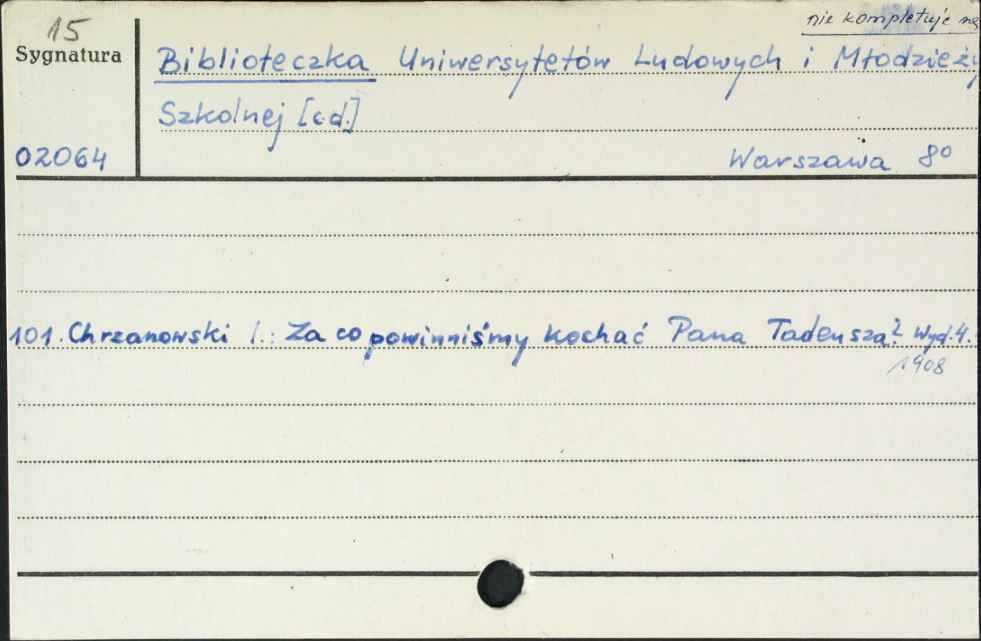 15
nie kompletuje
Sygnatura
Biblioteczka Uniwersytetów Ludowych i Młodzieży
Szkolnej [c.d.]
02064
Warszawa 8°
101. Chrzanowski I.: Za co powinniśmy kochać Pana Tadeusza? Wyd. 4.
1908